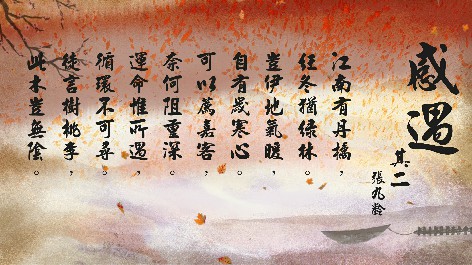 感遇
其二
張九齡
江南有丹橘，
經冬猶綠林。
豈伊地氣暖，
自有歲寒心。
可以薦嘉客，
奈何阻重深。
運命惟所遇，
循環不可尋。
徒言樹桃李，
此木豈無陰。